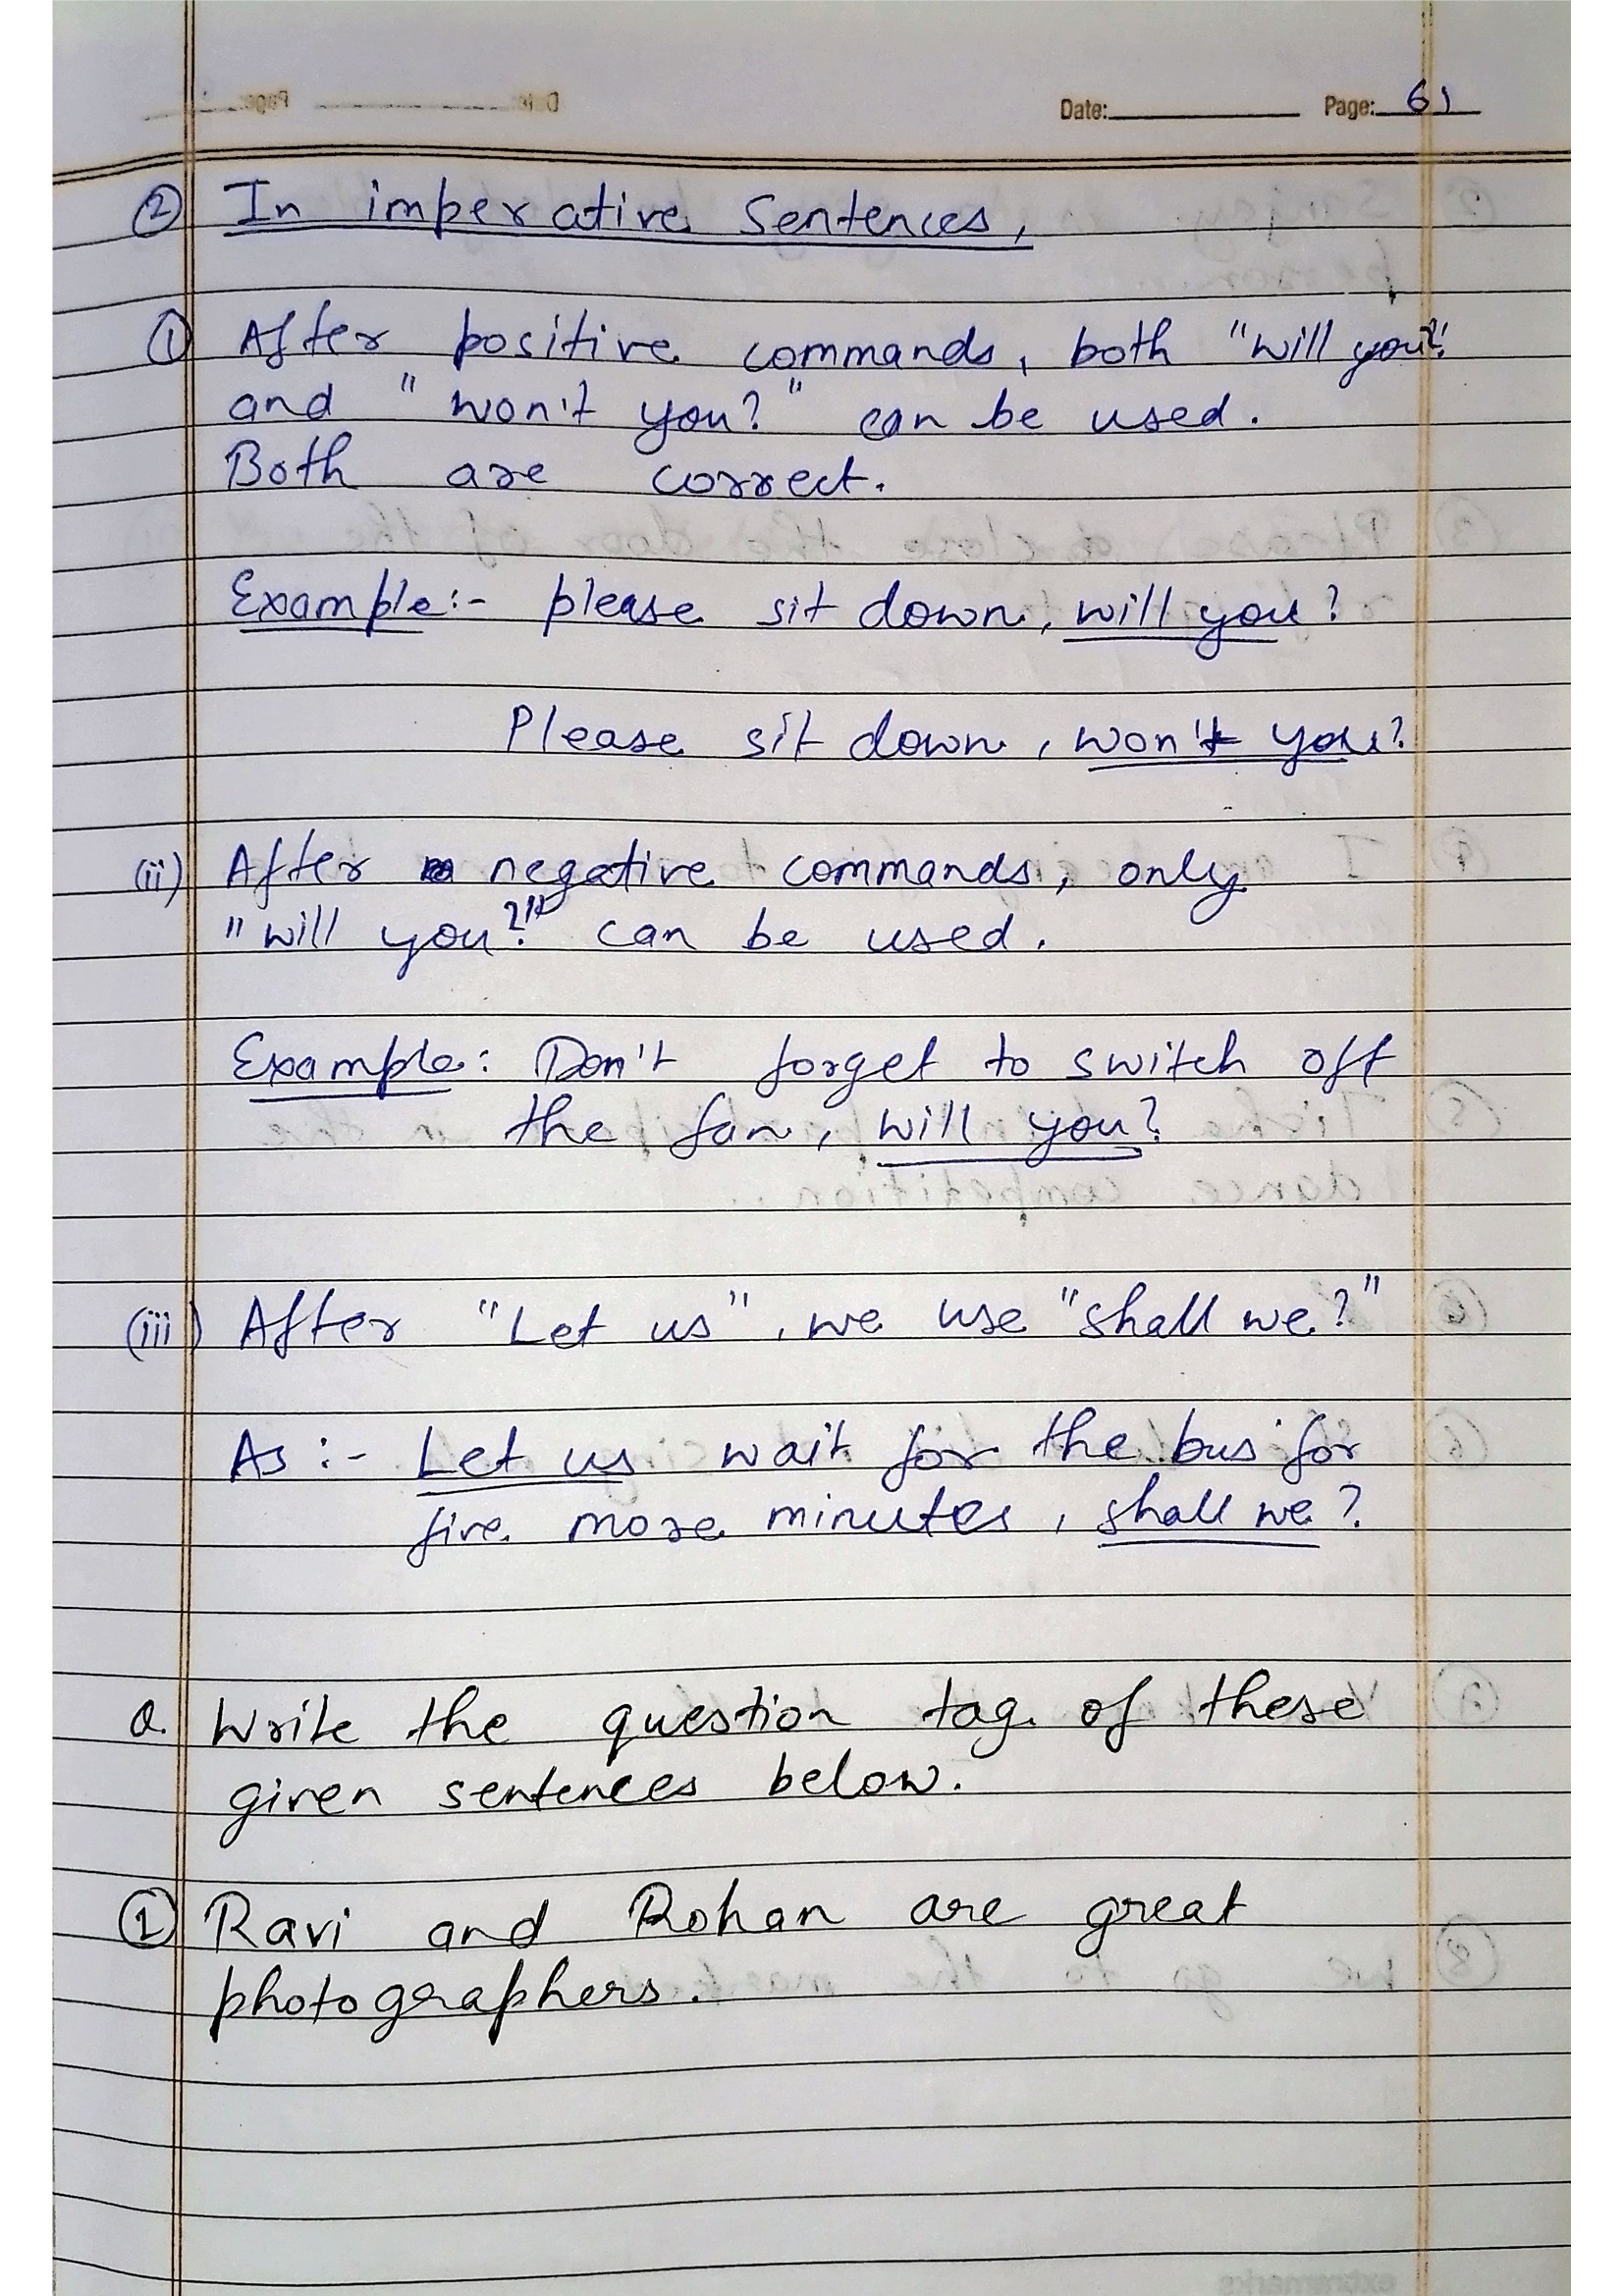 Date: Page: 61
② In imperative Sentences,
① After positive commands, both "will you?"
and "won't you?" can be used.
Both are correct.
Example:- please sit down, will you?
Please sit down, won't you?
(ii) After negative commands, only
"will you?" can be used.
Example: Don't forget to switch off
the fan, will you?
(iii) After "Let us", we use "shall we?"
As :- Let us wait for the bus for
five more minutes, shall we?
Q. Write the question tag of these
given sentences below.
① Ravi and Rohan are great
photographers.